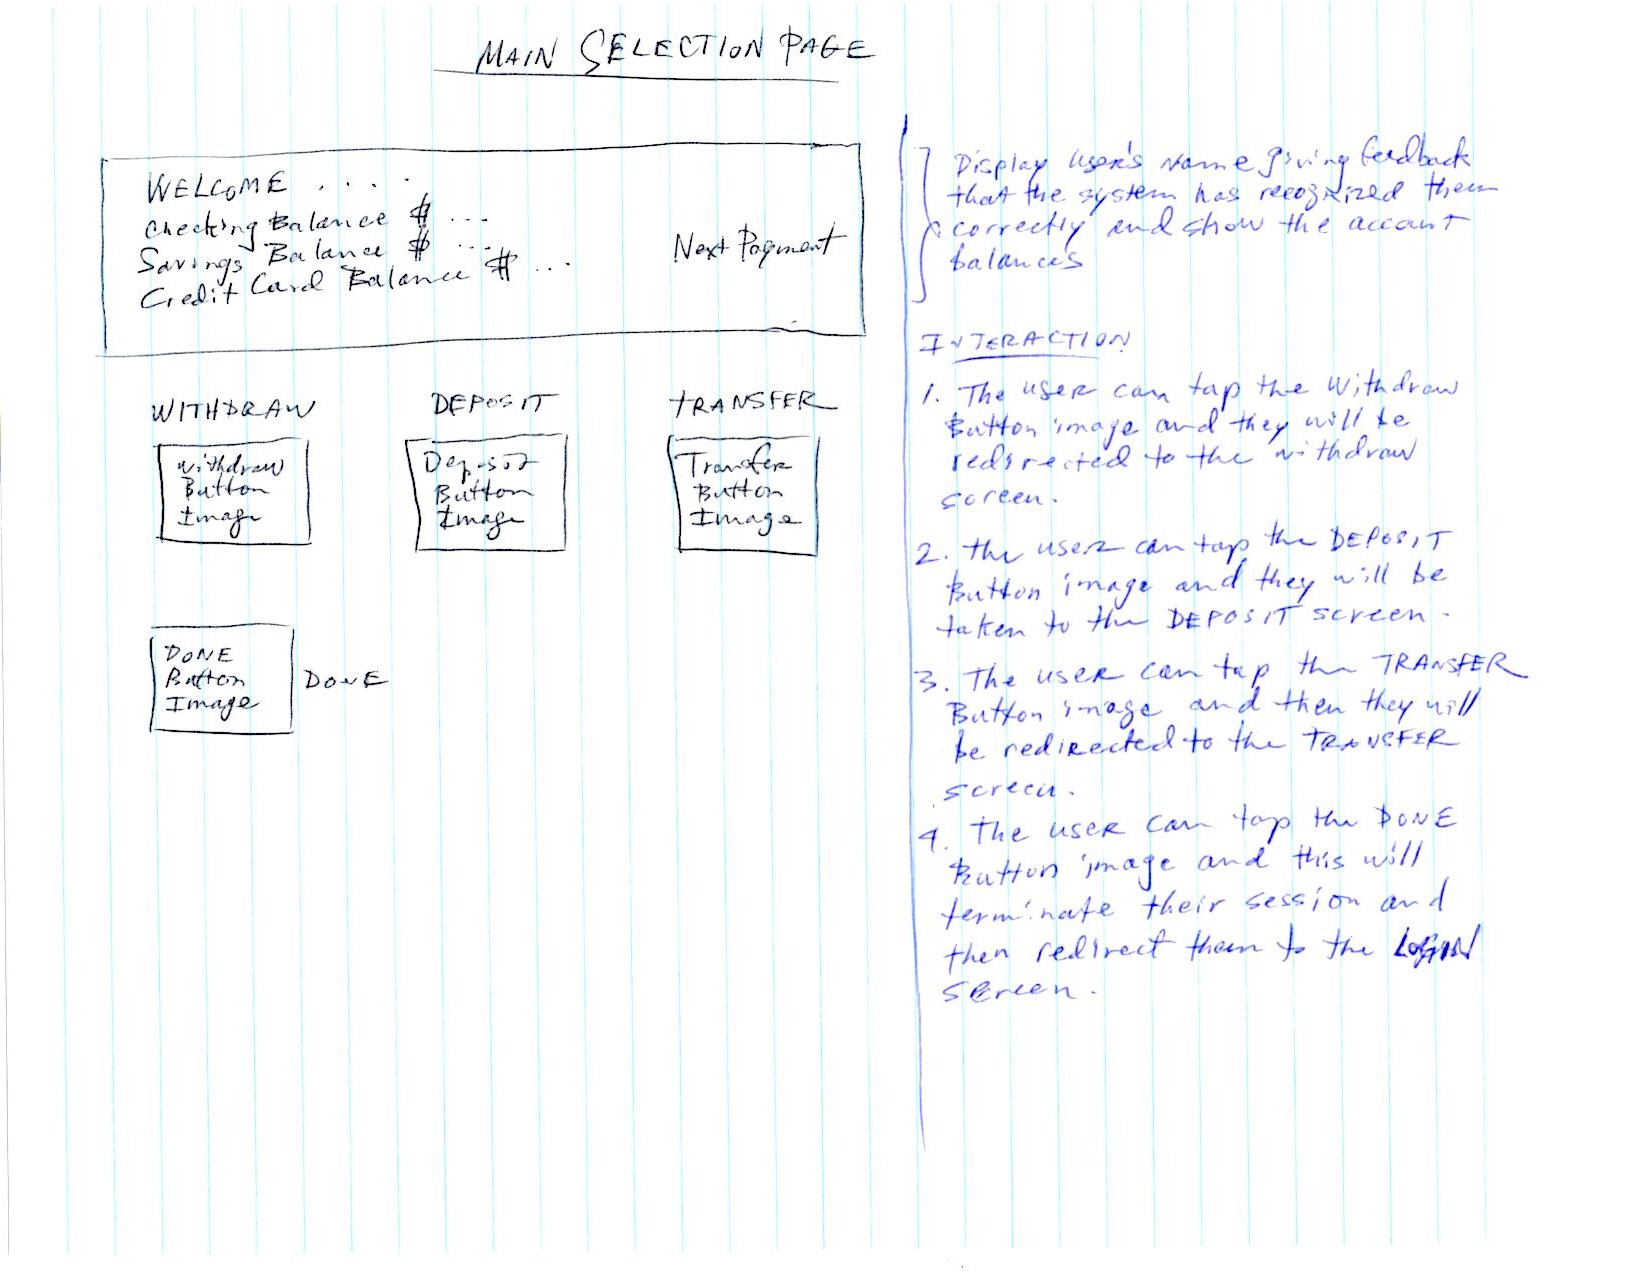 MAIN SELECTION PAGE
WELCOME . . . .
Checking Balance $ ...
Savings Balance $ ...
Credit Card Balance $ ...
Next Payment
WITHDRAW
DEPOSIT
TRANSFER
Withdraw
Button
Image
Deposit
Button
Image
Transfer
Button
Image
DONE
Button
Image
DONE
Display user's name giving feedback
that the system has recognized them
correctly and show the account
balances
INTERACTION
1. The user can tap the Withdraw
Button image and they will be
redirected to the withdraw
screen.
2. the user can tap the DEPOSIT
Button image and they will be
taken to the DEPOSIT screen.
3. The user can tap the TRANSFER
Button image and then they will
be redirected to the TRANSFER
screen.
4. The user can tap the DONE
Button image and this will
terminate their session and
then redirect them to the LOGIN
screen.